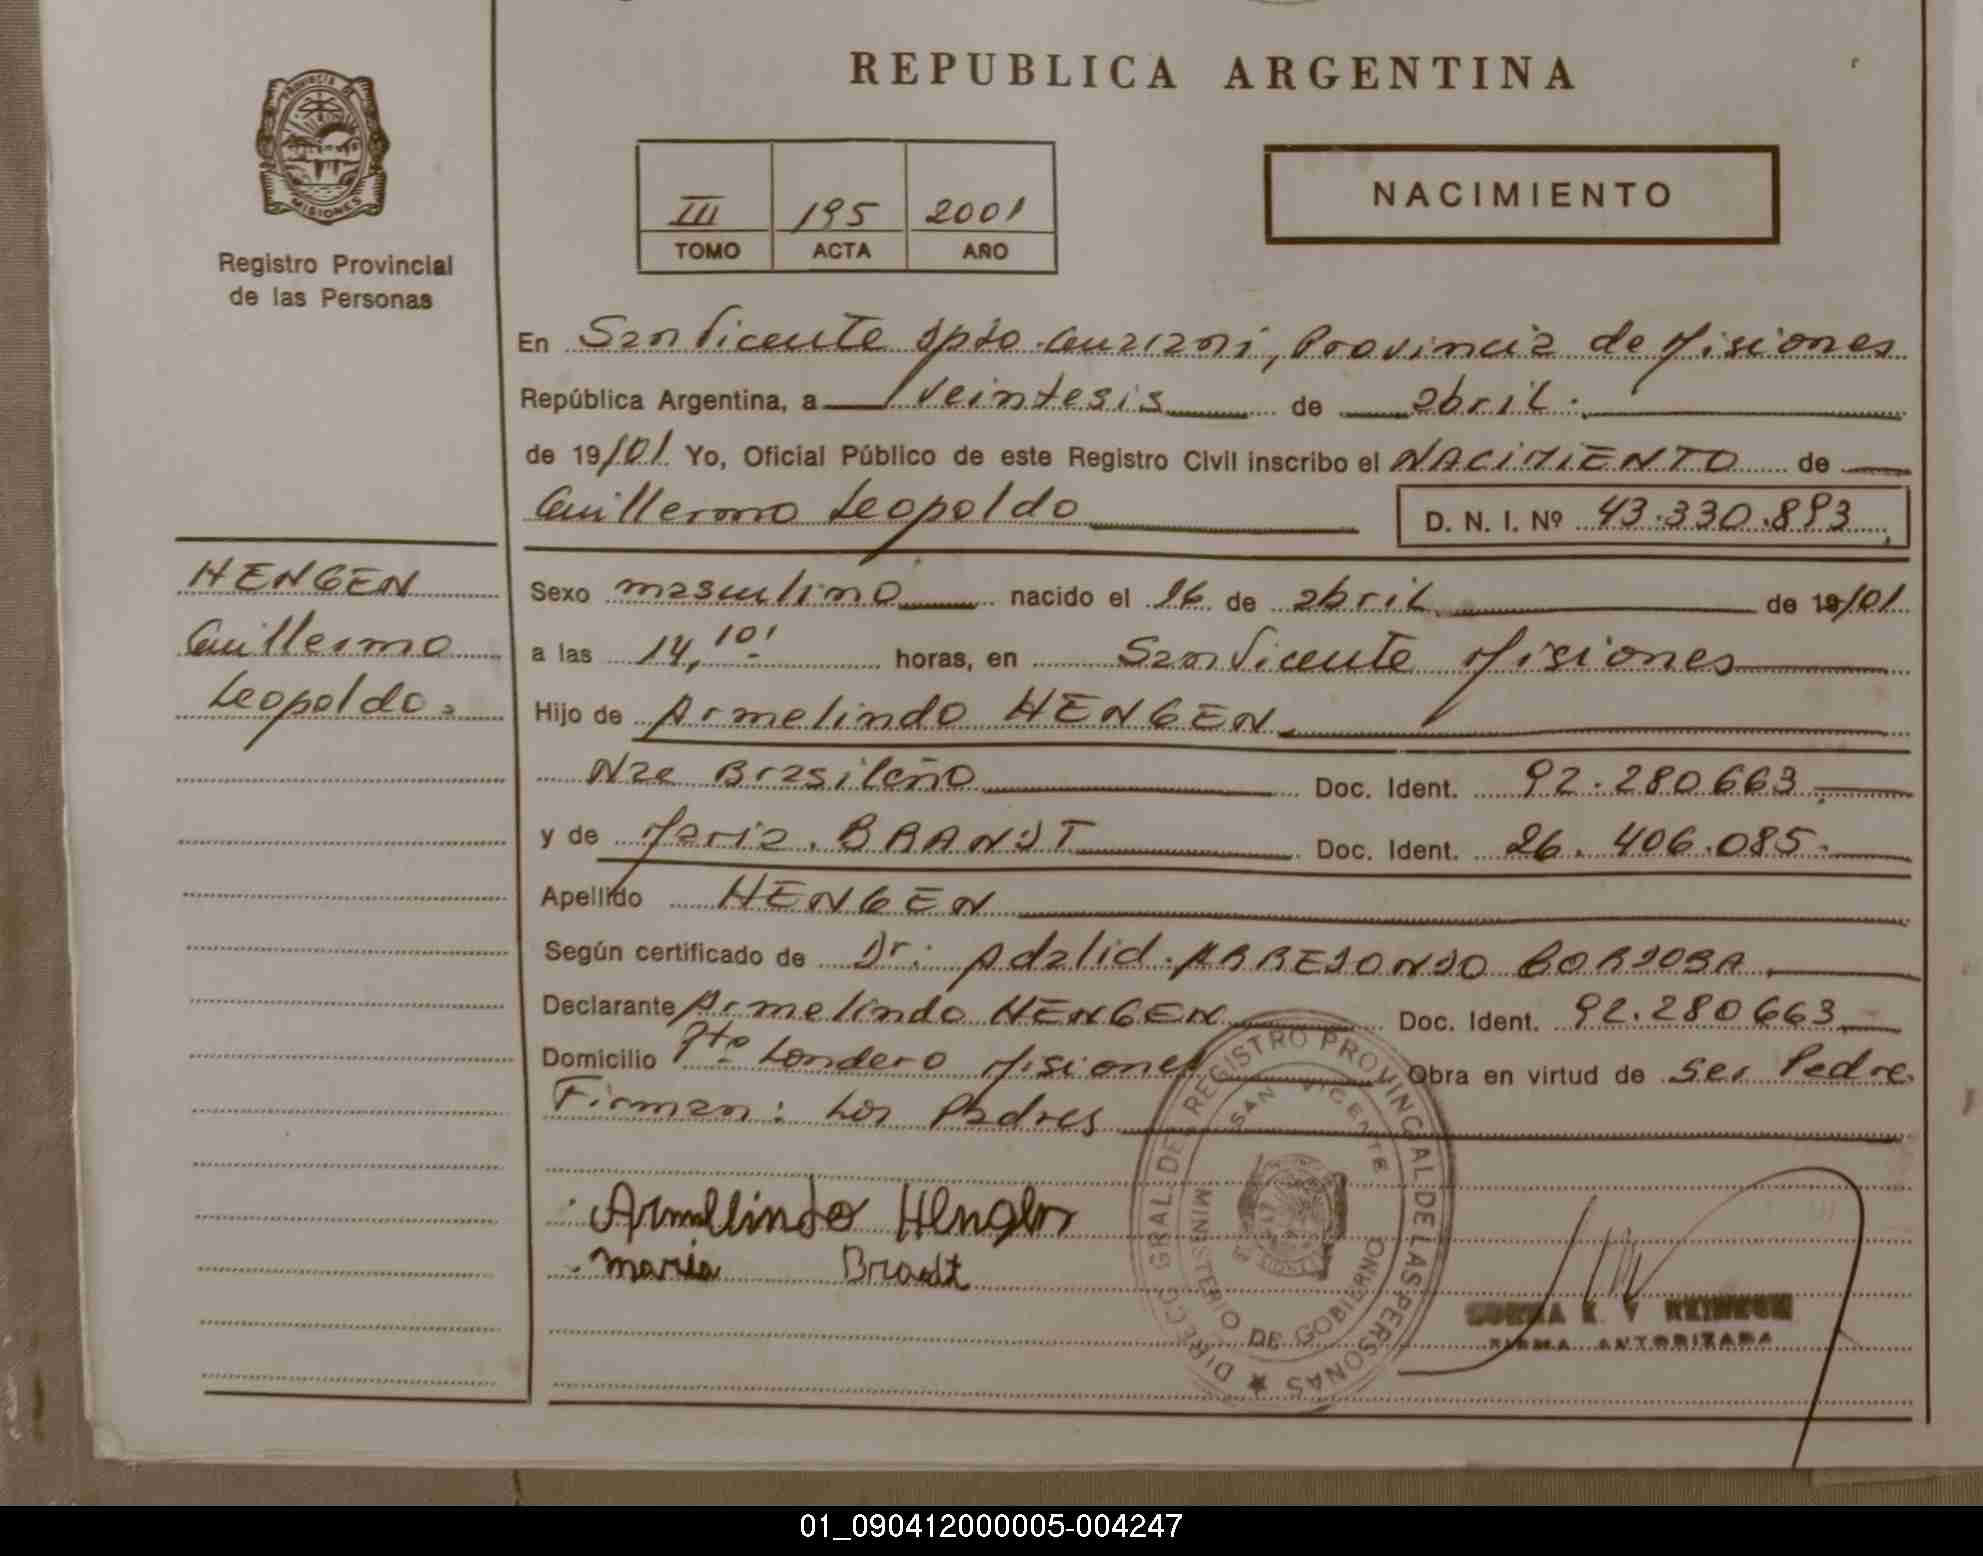 REPUBLICA ARGENTINA
PROVINCIA DE
MISIONES
Registro Provincial
de las Personas
III 195 2001
TOMO ACTA AÑO
NACIMIENTO
En San Vicente Dpto. Guaraní, Provincia de Misiones
República Argentina, a veintesis de abril.
de 19/01 Yo, Oficial Público de este Registro Civil inscribo el NACIMIENTO de
Guillermo Leopoldo D. N. I. Nº 43.330.893
HENGEN
Guillermo
Leopoldo.
Sexo masculino nacido el 16 de abril de 19/01
a las 14,10' horas, en San Vicente Misiones
Hijo de Armelindo HENGEN
Nac Brasileño Doc. Ident. 92.280663
y de Maria. BRANDT Doc. Ident. 26.406.085.
Apellido HENGEN
Según certificado de Dr: Adalid. ARREDONDO CORDOBA.
Declarante Armelindo HENGEN Doc. Ident. 92.280663
Domicilio Pto Londero Misiones Obra en virtud de ser Padre
Firman: Los Padres
Armellindo Hengen
maria Brandt
DIRECC GRAL DEL REGISTRO PROVINCIAL DE LAS PERSONAS
SAN VICENTE
MINISTERIO DE GOBIERNO
FIRMA AUTORIZADA
01_090412000005-004247